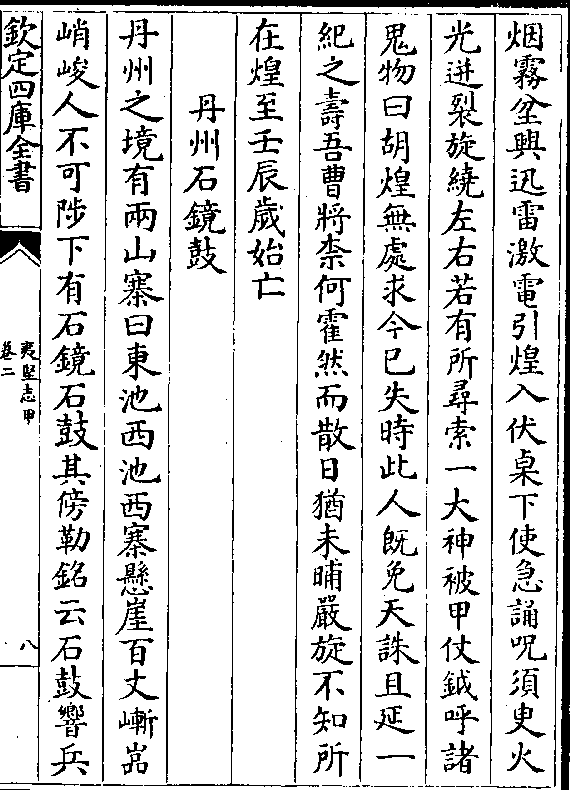 烟霧坌興迅雷激電引煌入伏桌下使急誦呪須臾火
光迸裂旋繞左右若有所尋索一大神被甲仗鉞呼諸
鬼物曰胡煌無處求今已失時此人既免天誅且延一
紀之壽吾曹將柰何霍然而散日猶未晡嚴旋不知所
在煌至壬辰歲始亡
丹州石鏡鼓
丹州之境有兩山寨曰東池西池西寨懸崖百丈嶄嵓
峭峻人不可陟下有石鏡石鼓其傍勒銘云石鼓響兵
欽定四庫全書
夷堅志甲
卷二
八